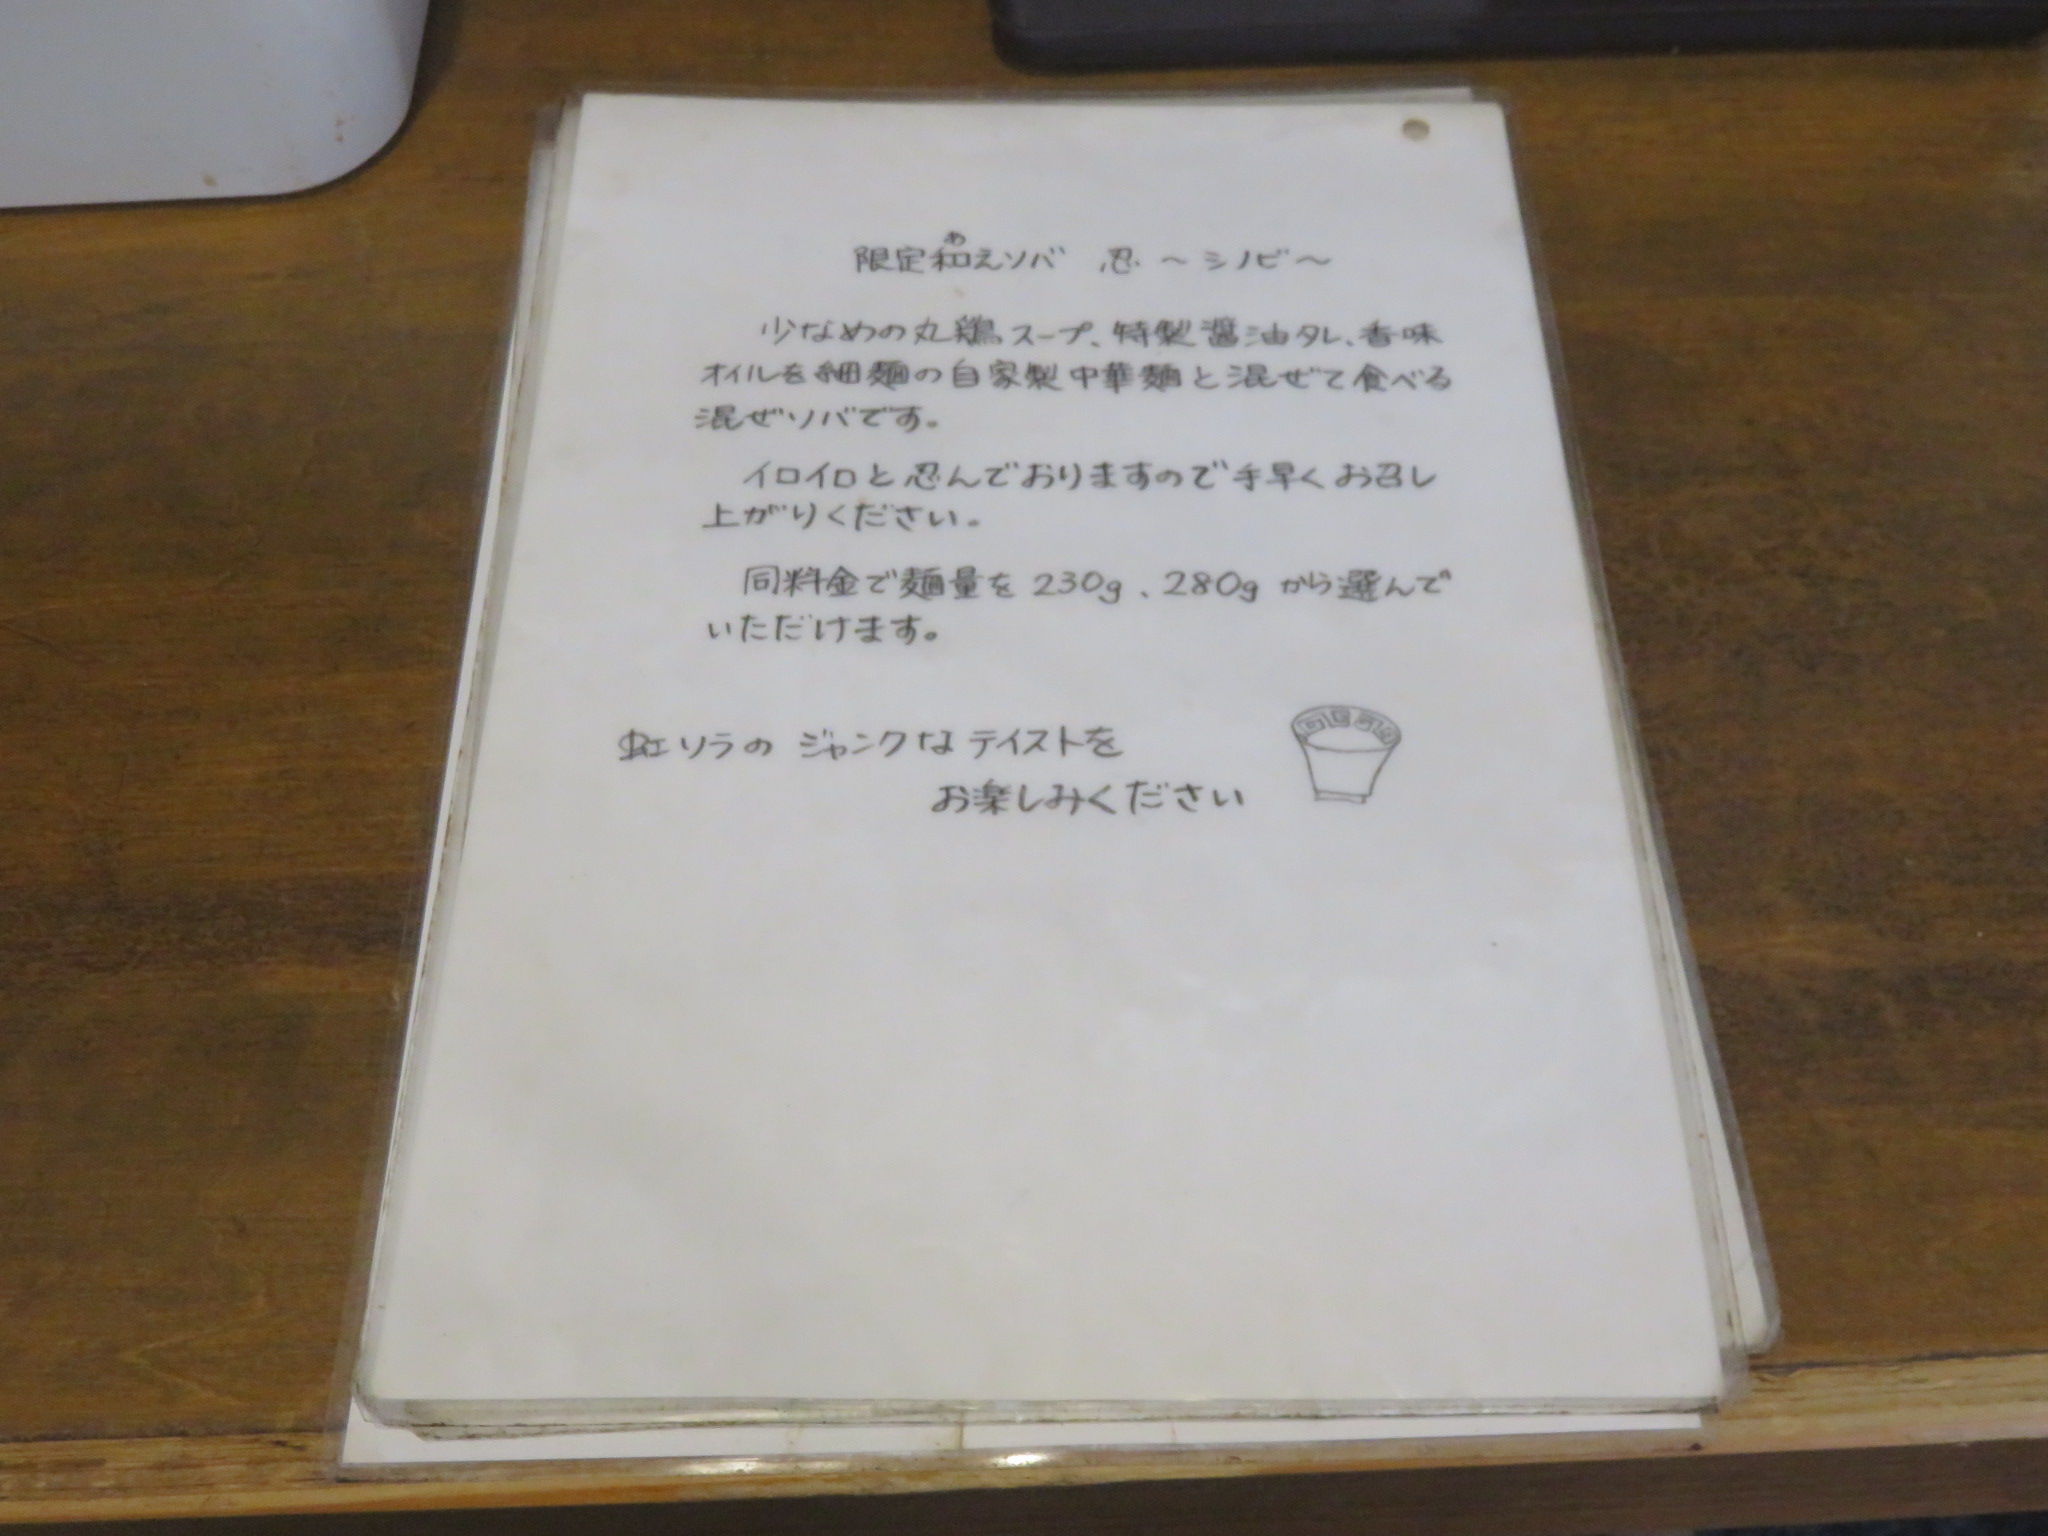 限定和えソバ 忍 ～シノビ～
あ
少なめの丸鶏スープ、特製醤油タレ、香味
オイルを細麺の自家製中華麺と混ぜて食べる
混ぜソバです。
イロイロと忍んでおりますので手早くお召し
上がりください。
同料金で麺量を 230g、280g から選んで
いただけます。
虹ソラの ジャンクなテイストを
お楽しみください